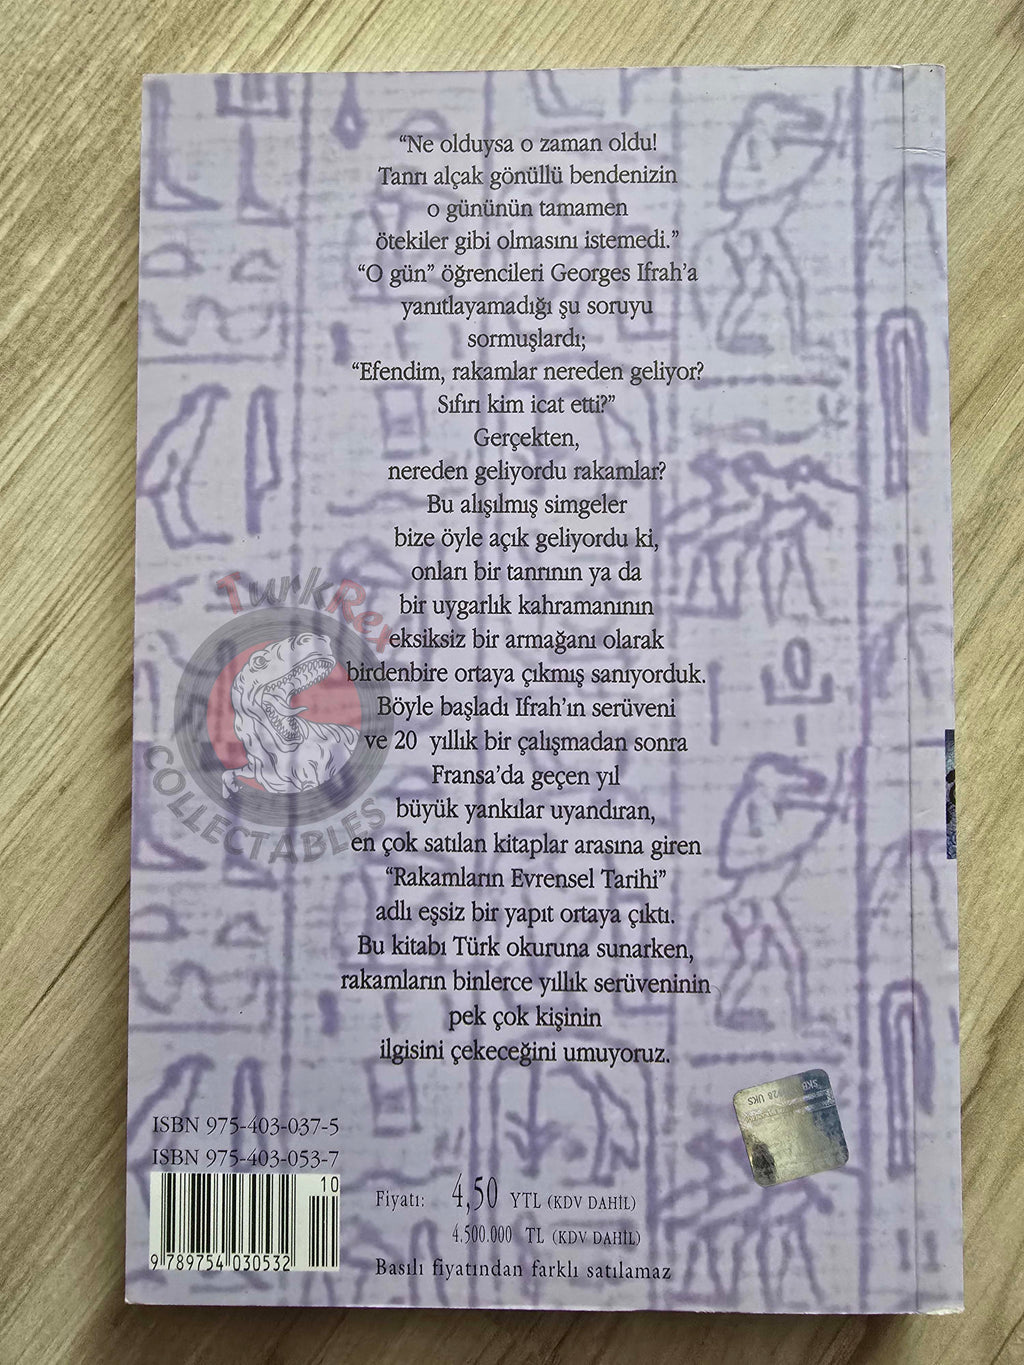 “Ne olduysa o zaman oldu!
Tanrı alçak gönüllü bendenizin
o gününün tamamen
ötekiler gibi olmasını istemedi.”
“O gün” öğrencileri Georges Ifrah’a
yanıtlayamadığı şu soruyu
sormuşlardı;
“Efendim, rakamlar nereden geliyor?
Sıfırı kim icat etti?”
Gerçekten,
nereden geliyordu rakamlar?
Bu alışılmış simgeler
bize öyle açık geliyordu ki,
onları bir tanrının ya da
bir uygarlık kahramanının
eksiksiz bir armağanı olarak
birdenbire ortaya çıkmış sanıyorduk.
Böyle başladı Ifrah’ın serüveni
ve 20 yıllık bir çalışmadan sonra
Fransa’da geçen yıl
büyük yankılar uyandıran,
en çok satılan kitaplar arasına giren
“Rakamların Evrensel Tarihi”
adlı eşsiz bir yapıt ortaya çıktı.
Bu kitabı Türk okuruna sunarken,
rakamların binlerce yıllık serüveninin
pek çok kişinin
ilgisini çekeceğini umuyoruz.
TurkRex
COLLECTABLES
ISBN 975-403-037-5
ISBN 975-403-053-7
10
9 789754 030532
Fiyatı: 4,50 YTL (KDV DAHİL)
4.500.000 TL (KDV DAHİL)
Basılı fiyatından farklı satılamaz